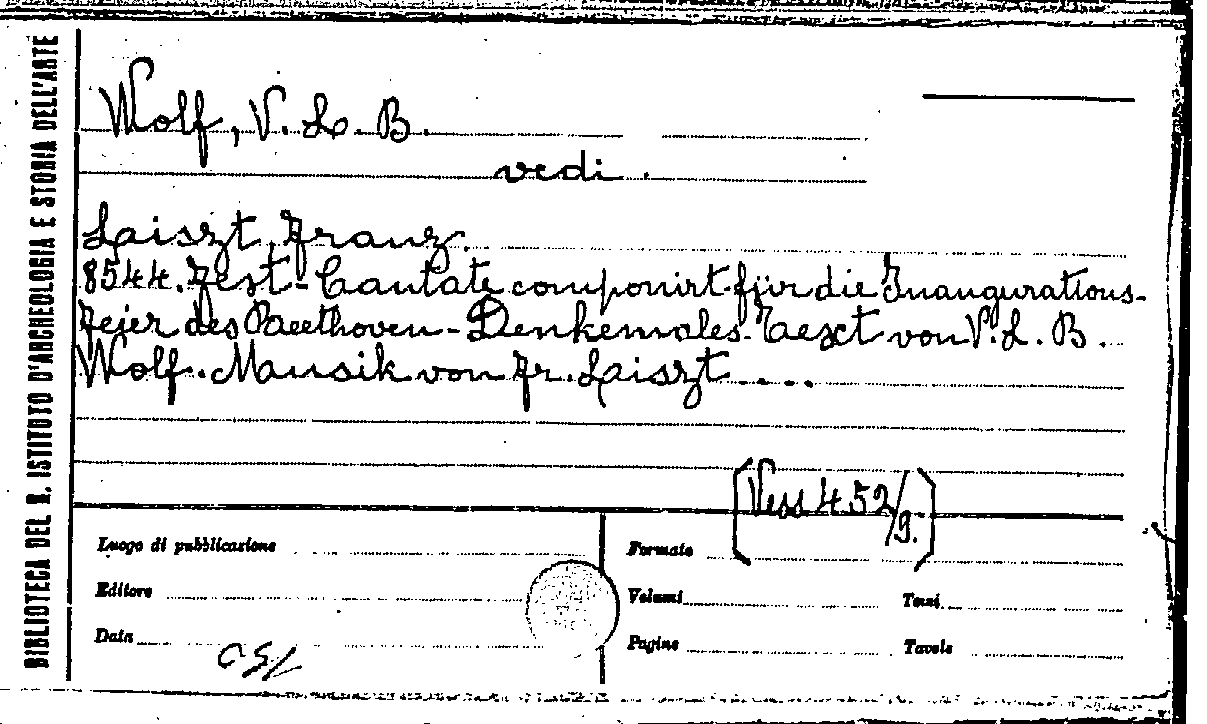 BIBLIOTECA DEL R. ISTITUTO D'ARCHEOLOGIA E STORIA DELL'ARTE
Wolf, V. L. B.
vedi
Laiszt, Franz.
8544. Fest-Cantate componirt für die Inaugurations-
Fejer des Paeethoven-Denkemales. Taext von V. L. B.
Wolf. Mausik von Fr. Laiszt....
[Vess 452/9.]
Luogo di pubblicazione
Editore
Data
Formato
Volumi Tomi
Pagine Tavole